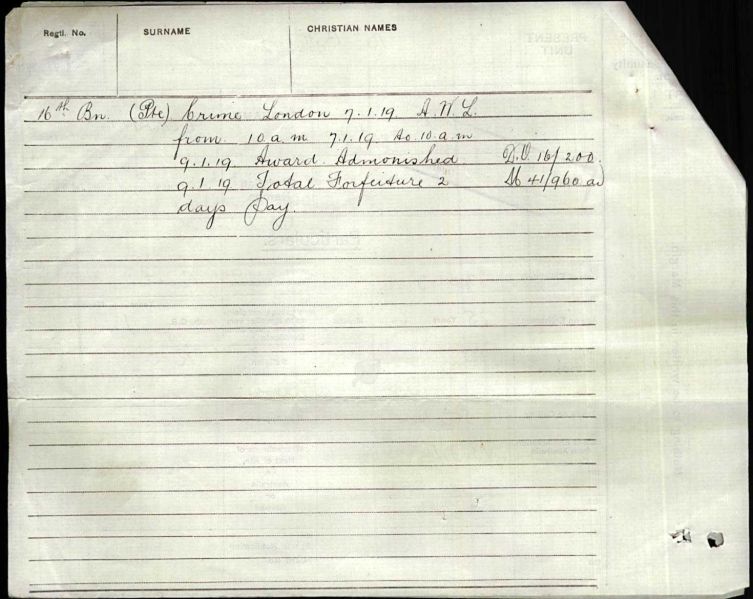 Regtl. No. SURNAME CHRISTIAN NAMES
16th Bn. (Pte) Crime London 7.1.19 A.W.L.
from 10 a.m 7.1.19 to 10 a.m
9.1.19 Award Admonished D.O. 16/200.
9.1.19 Total Forfeiture 2 41/960
days Pay.